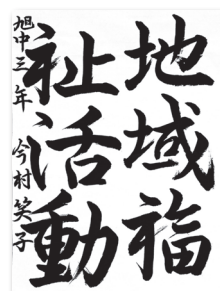 地域福
祉活動
旭中三年 今村笑子